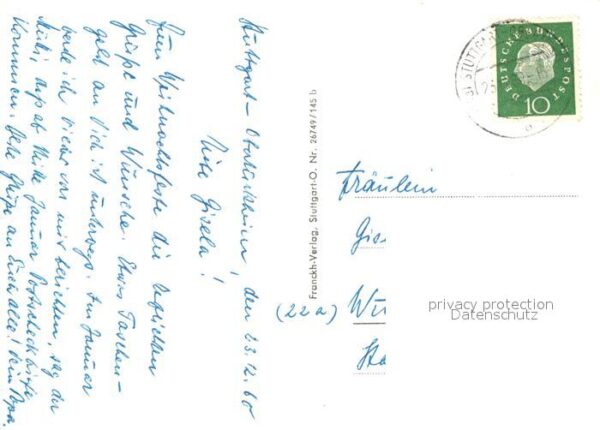 Stuttgart-Obertürkheim, den 23.12.60
Liebe Gisela!
Zum Weihnachtsfeste die herzlichsten
Grüße und Wünsche. Etwas Taschen-
geld an Dich ist unterwegs. Im Januar
werde ich vieles von mir berichten, sag der
Mutti, daß ab Mitte Januar Postscheckbriefe
kommen. Viele Grüße an Euch alle! Dein Papa.
Franckh-Verlag, Stuttgart-O. Nr. 26749/145 b
STUTTGART
DEUTSCHE BUNDESPOST
10
Fräulein
Gis
(22a) Wu
privacy protection
Datenschutz